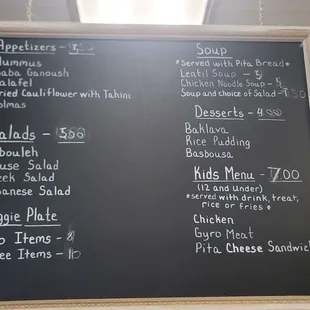 Appetizers -
Hummus
Baba Ganoush
Falafel
Fried Cauliflower with Tahini
Dolmas
Salads -
Tabouleh
House Salad
Greek Salad
Lebanese Salad
Veggie Plate
Two Items - 8
Three Items - 10
Soup
*Served with Pita Bread*
Lentil Soup - 5
Chicken Noodle Soup - 5
Soup and choice of Salad -
Desserts -
Baklava
Rice Pudding
Basbousa
Kids Menu - 7.00
(12 and under)
*served with drink, treat,
rice or fries *
Chicken
Gyro Meat
Pita Cheese Sandwich